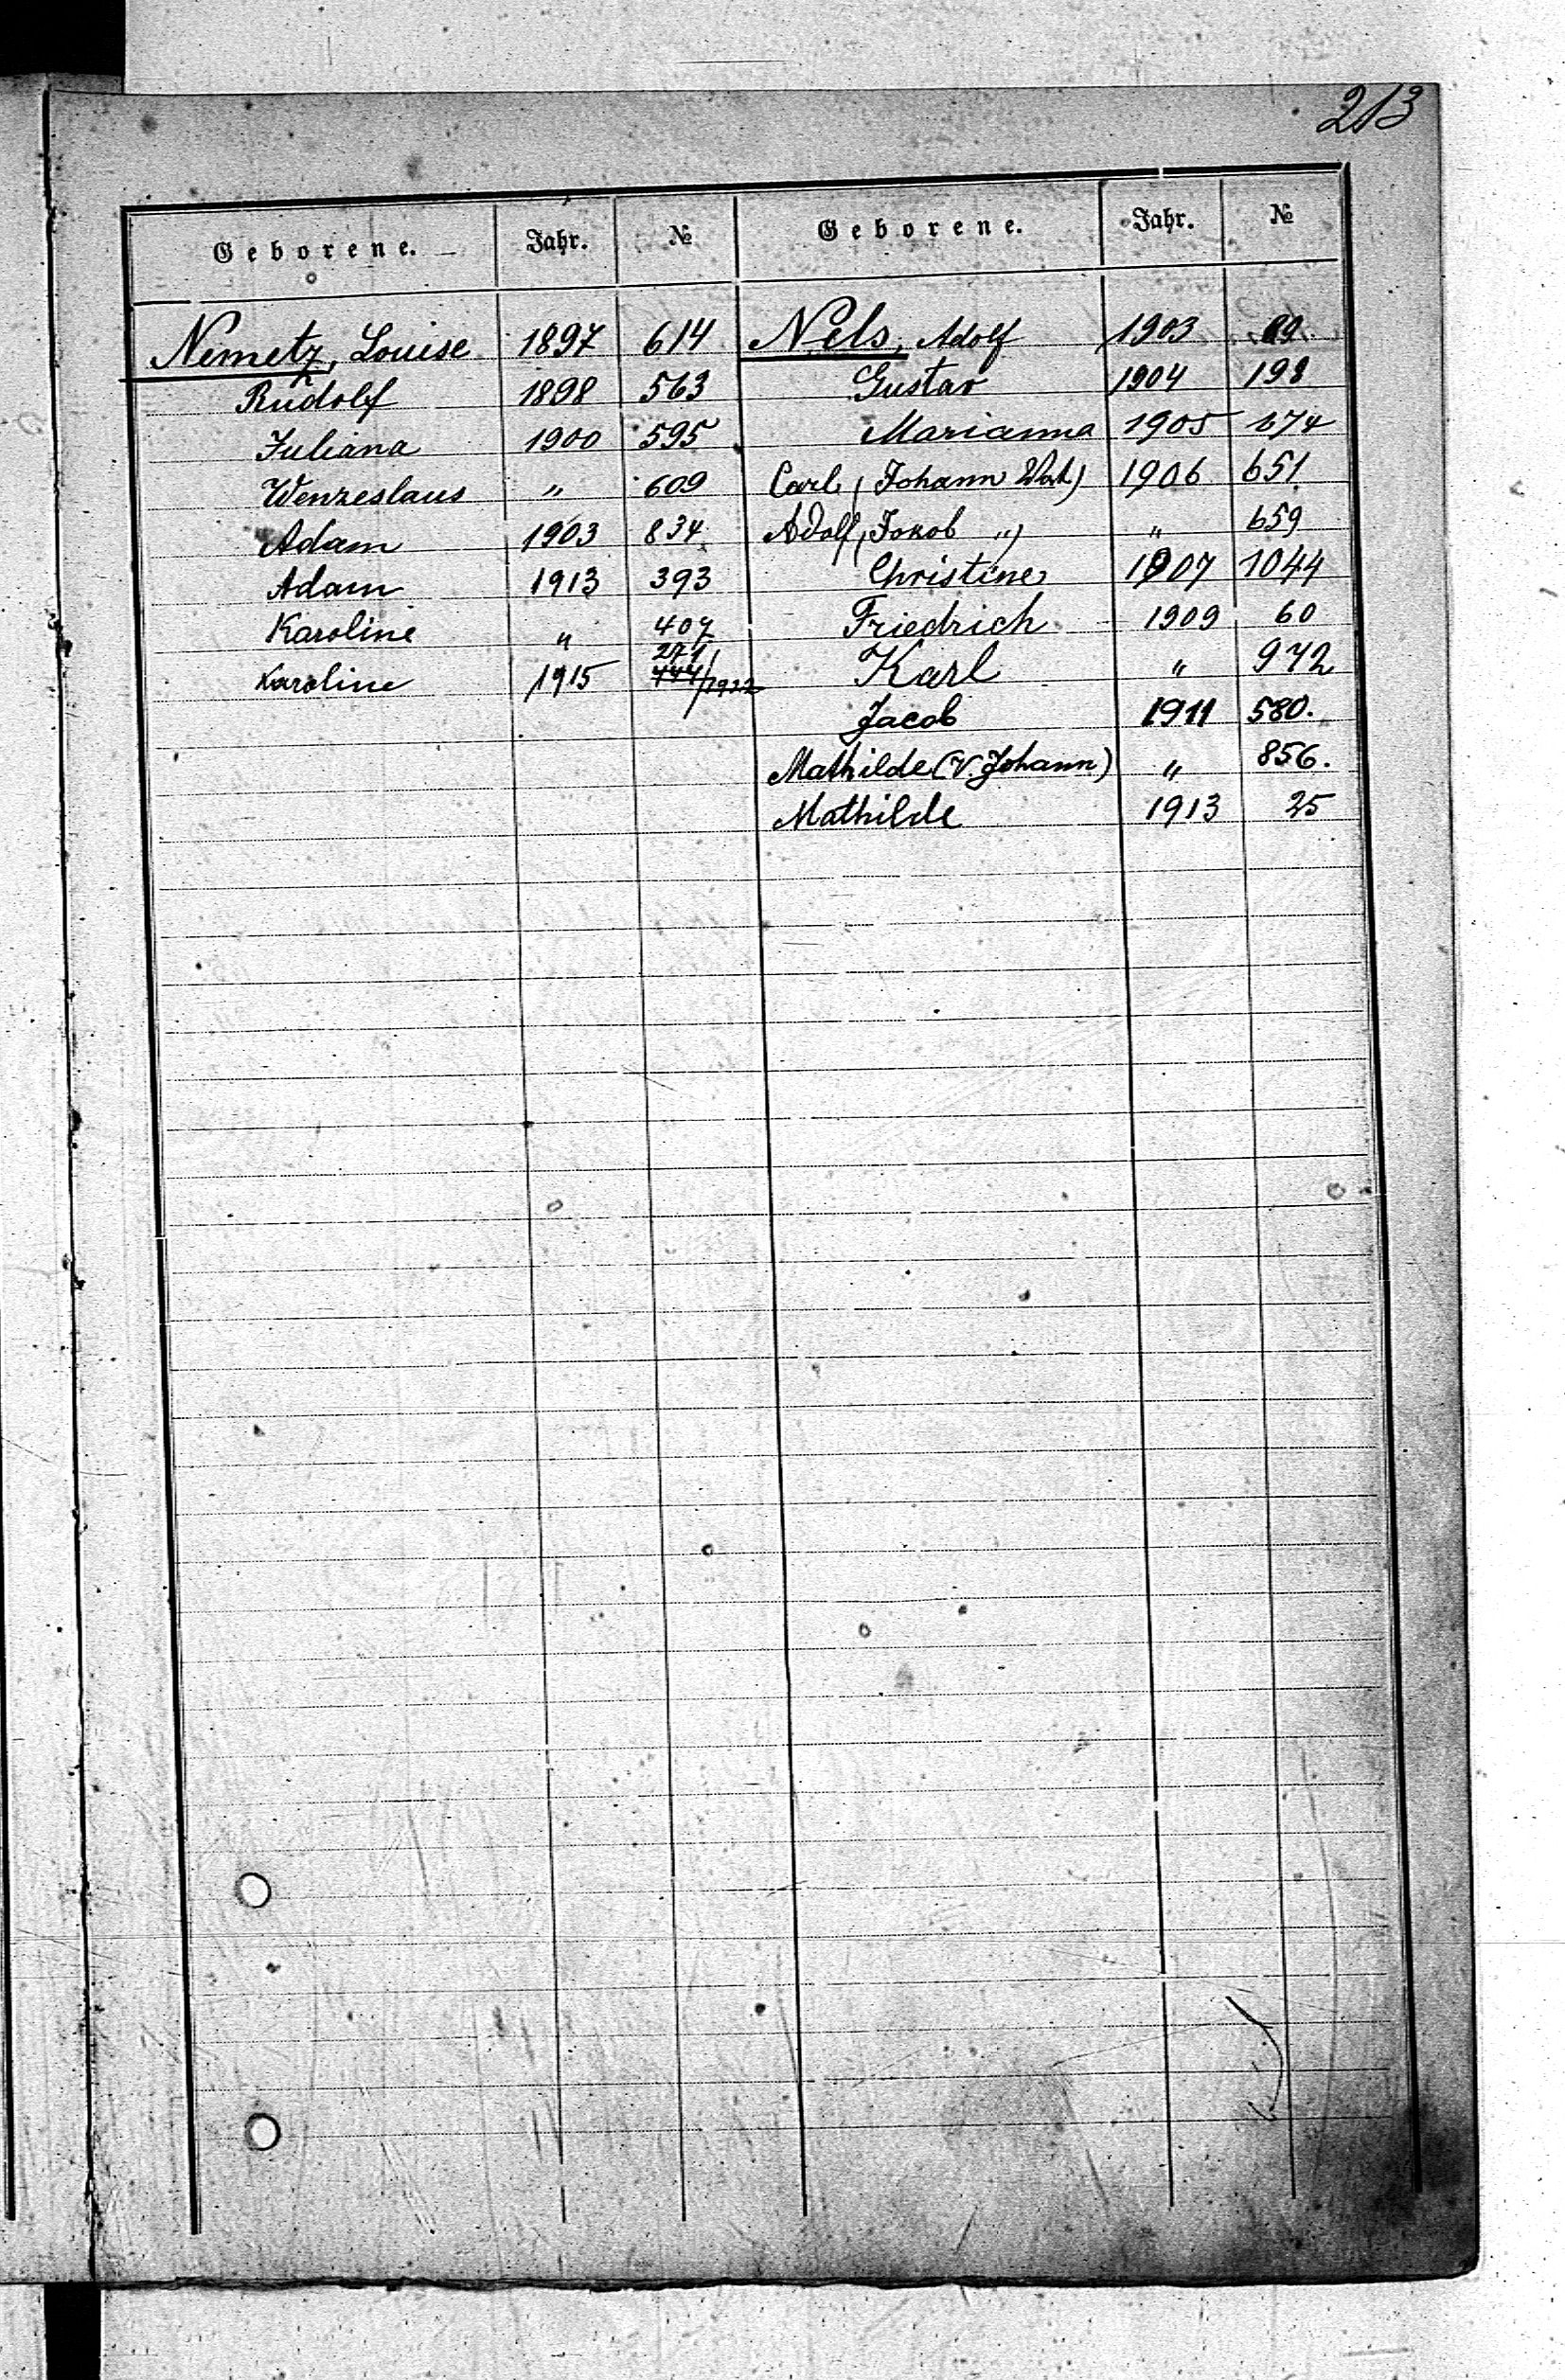 213
Geborene. Jahr. № Geborene. Jahr. №
Nemetz, Louise 1897 614 Nels, Adolf 1903 89
Rudolf 1898 563 Gustav 1904 198
Juliana 1900 595 Marianna 1905 674
Wenzeslaus " 609 Carl (Johann 1906 651
Adam 1903 834 Adolf (Jokob ") " 659
Adam 1913 393 Christine 1907 1044
Karoline " 407 Friedrich 1909 60
Karoline 1915 271 444/1922 Karl " 972
Jacob 1911 580.
Mathilde (V. Johann) " 856.
Mathilde 1913 25